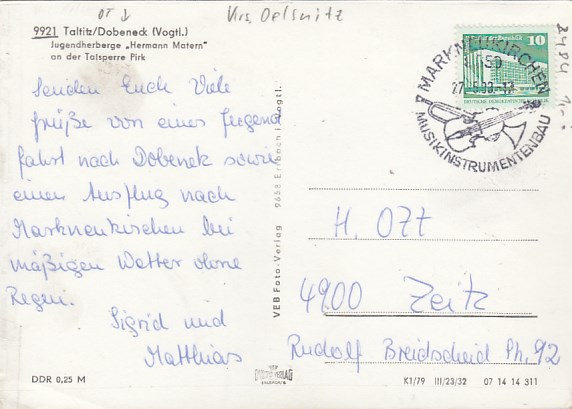 OT
Krs. Oelsnitz
9921 Taltitz/Dobeneck (Vogtl.)
Jugendherberge „Hermann Matern"
an der Talsperre Pirk
Senden Euch Viele
Grüße von eines Jugend
fahrt nach Dobenek sowie
einen Ausflug nach
Markneukirchen bei
mäßigen Wetter ohne
Regen.
Sigrid und
Matthias
VEB Foto-Verlag 9658 Erlbach i. Vogtl.
10
DEUTSCHE DEMOKRATISCHE
MARKNEUKIRCHEN
MUSIKINSTRUMENTENBAU
H. Ott
4900 Zeitz
Rudolf Breidscheid Ph. 92
DDR 0,25 M
K1/79 III/23/32 07 14 14 311